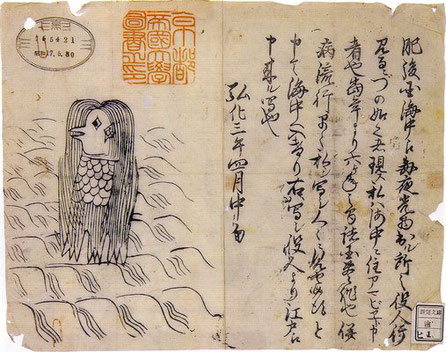 肥後国海中え毎夜光物出ル所之役人行
見るニづの如く者現ス私ハ海中ニ住アマビヱト申
者也當年より六ヶ年之間諸国豊作也併
病流行早々私ヲ写シ人々ニ見セ候得と
申て海中へ入けり右写シ役人より江戸え
申来ル写也
弘化三年四月中旬
京都
帝國大學
圖書之印
165421
昭和17.5.30